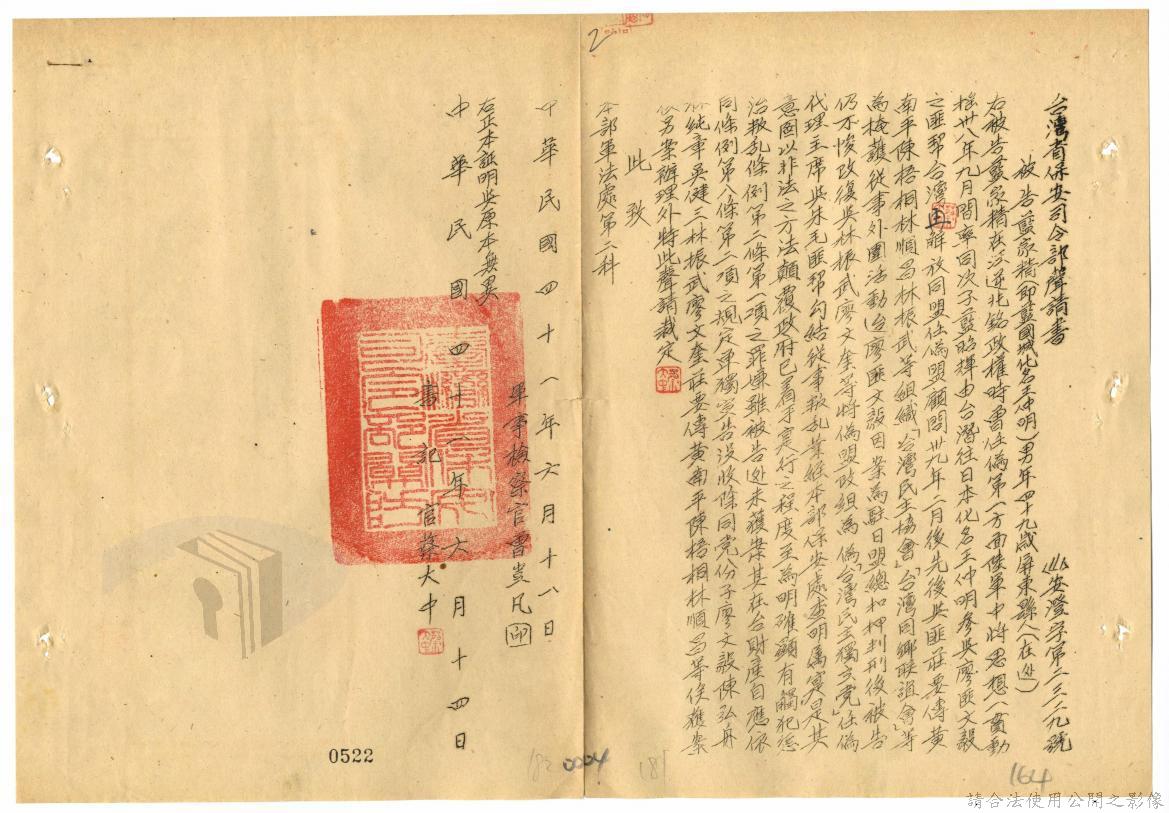 台灣省保安司令部聲請書
安澄字第二三三九號
被告藍家精(即藍國城化名王仲明)男年四十九歲屏東縣人(在逃)
右被告藍家精在汪逆兆銘政權時曾任偽第一方面陸軍中將思想一貫動
搖卅八年九月間率同次子藍昭輝由台潛往日本化名王仲明參與廖匪文毅
之匪幫台灣再解放同盟任偽盟顧問卅九年二月後先後與匪莊要傳黃
南平陳梧桐林順昌林振武等組織「台灣民主協會」「台灣同鄉聯誼會」等
為掩護從事外圍活動迨廖匪文毅因案為駐日盟總扣押判刑後被告
仍不悛改復與林振武廖文奎等將偽盟改組為偽「台灣民主獨立党」任偽
代理主席與朱毛匪幫勾結從事叛乱業經本部保安處查明属實是其
意圖以非法之方法顛覆政府已着手实行之程度至為明確顯有觸犯懲
治叛乱條例第二條第一項之罪嫌雖被告在逃未獲案其在台財產自應依
同條例第八條第二項之規定單獨宣告沒收除同党份子廖文毅陳弘舟
純章吳健三林振武廖文奎莊要傳黃南平陳梧桐林順昌等俟獲案
另案辦理外特此聲請裁定
此致
本部軍法處第二科
軍事檢察官曹岂凡 印
中華民國四十一年六月十八日
右正本証明與原本無異
書記官蔡大中
中華民國四十一年六月十四日
0522
0004
181
164
2
請合法使用公開之影像